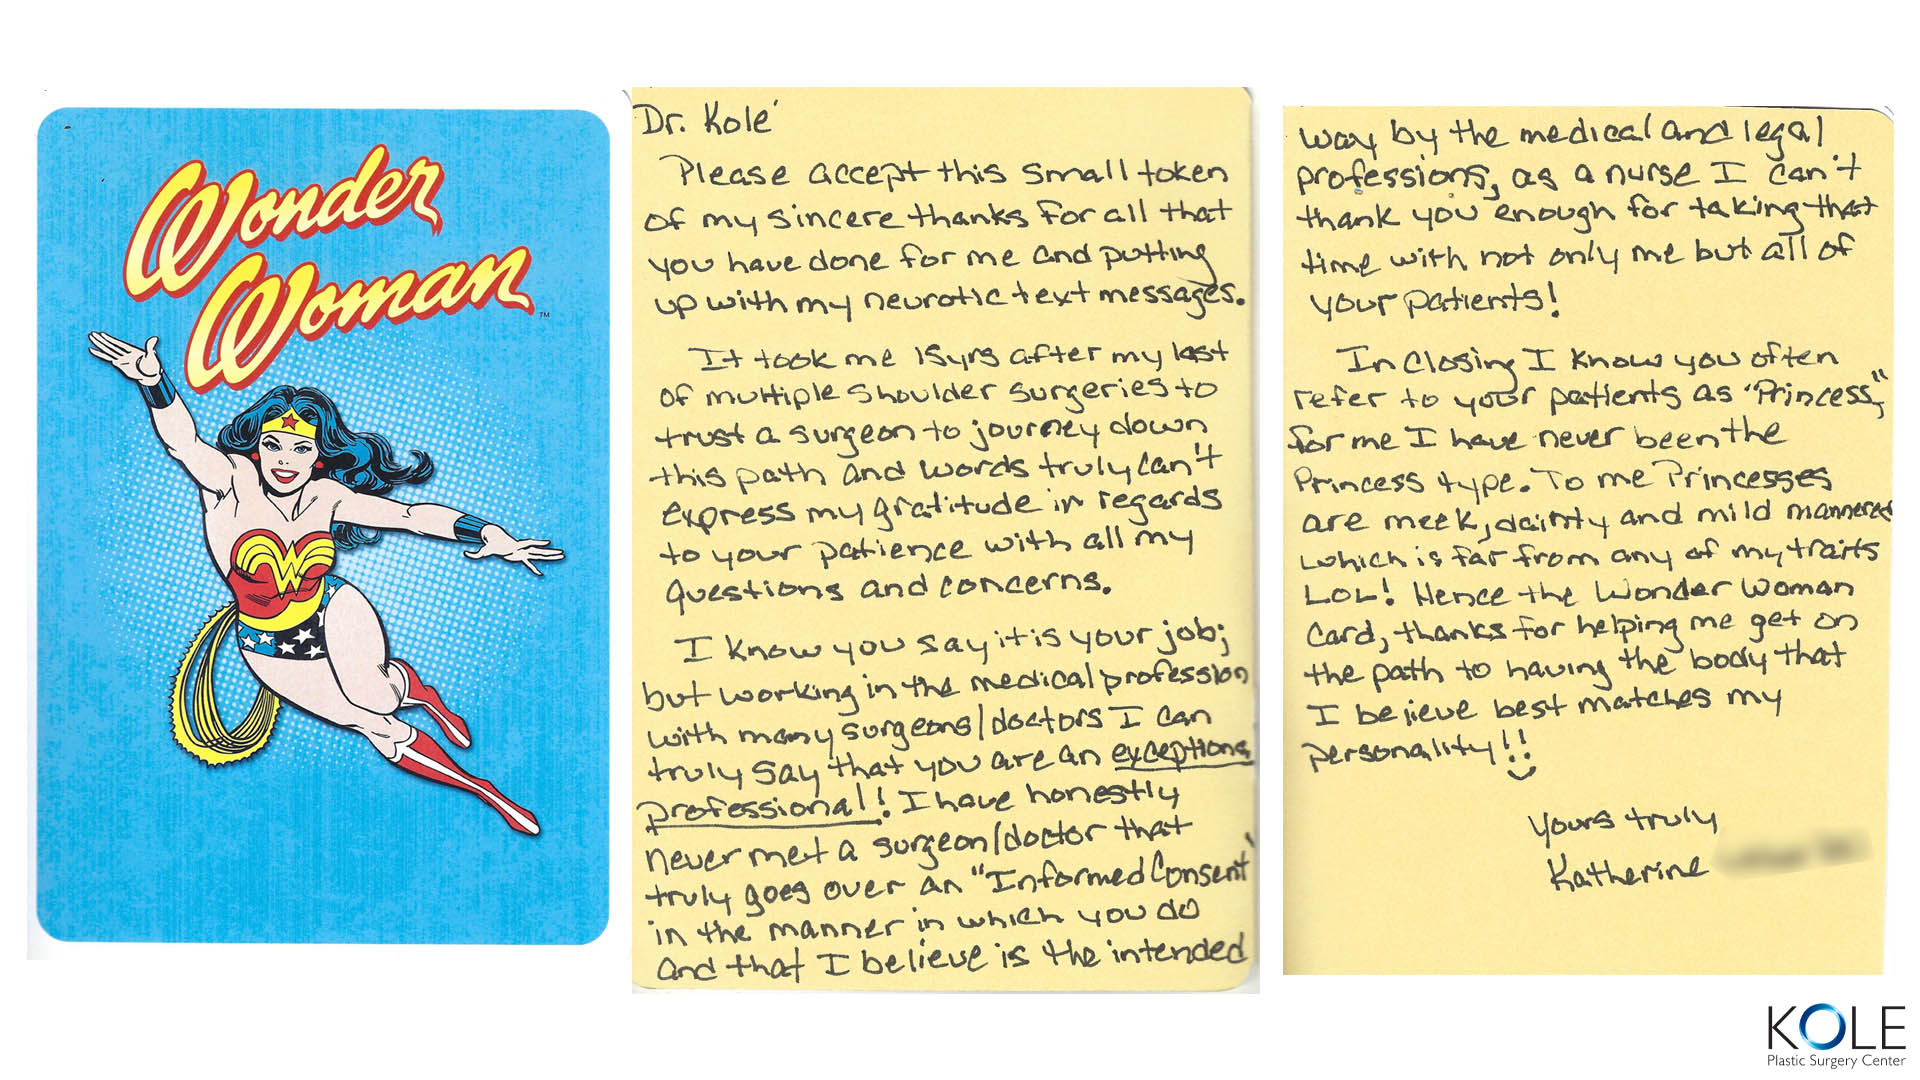 Wonder
Woman
TM
W
Dr. Kolé
Please accept this small token
of my sincere thanks for all that
you have done for me and putting
up with my neurotic text messages.
It took me 15yrs after my last
of multiple shoulder surgeries to
trust a surgeon to journey down
this path and words truly can't
express my gratitude in regards
to your patience with all my
questions and concerns.
I know you say it is your job;
but working in the medical profession
with many surgeons/doctors I can
truly say that you are an exceptional
professional! I have honestly
never met a surgeon/doctor that
truly goes over an "Informed Consent"
in the manner in which you do
and that I believe is the intended
way by the medical and legal
professions, as a nurse I can't
thank you enough for taking that
time with not only me but all of
your patients!
In closing I know you often
refer to your patients as "Princess",
for me I have never been the
Princess type. To me Princesses
are meek, dainty and mild mannered
which is far from any of my traits
LOL! Hence the Wonder Woman
Card, thanks for helping me get on
the path to having the body that
I believe best matches my
personality!!
Yours truly
Katherine
KOLE
Plastic Surgery Center